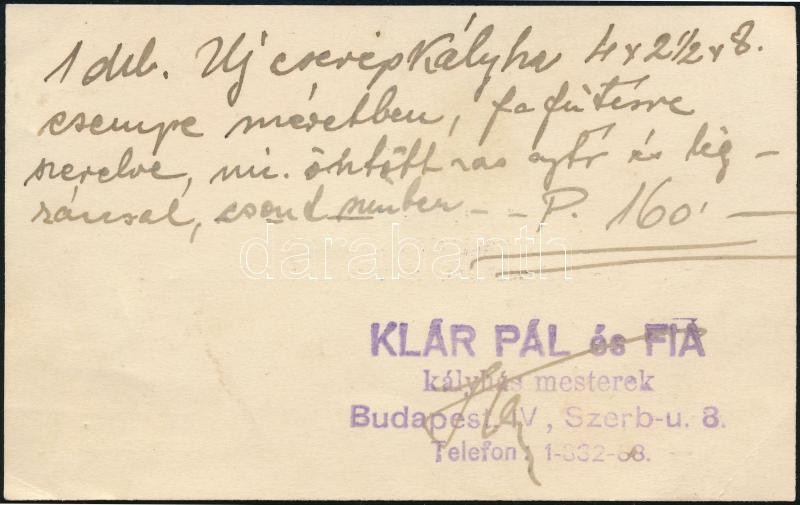 1 drb. Uj cserépkályha 4 x 2 1/2 x 8.
csempe méretben, fafütésre
szerelve, öntött vas ajtó és lég-
ráccsal, színben - - P. 160.-
darabanth
KLÁR PÁL és FIA
kályhás mesterek
Budapest, IV, Szerb-u. 8.
Telefon: 1-832-